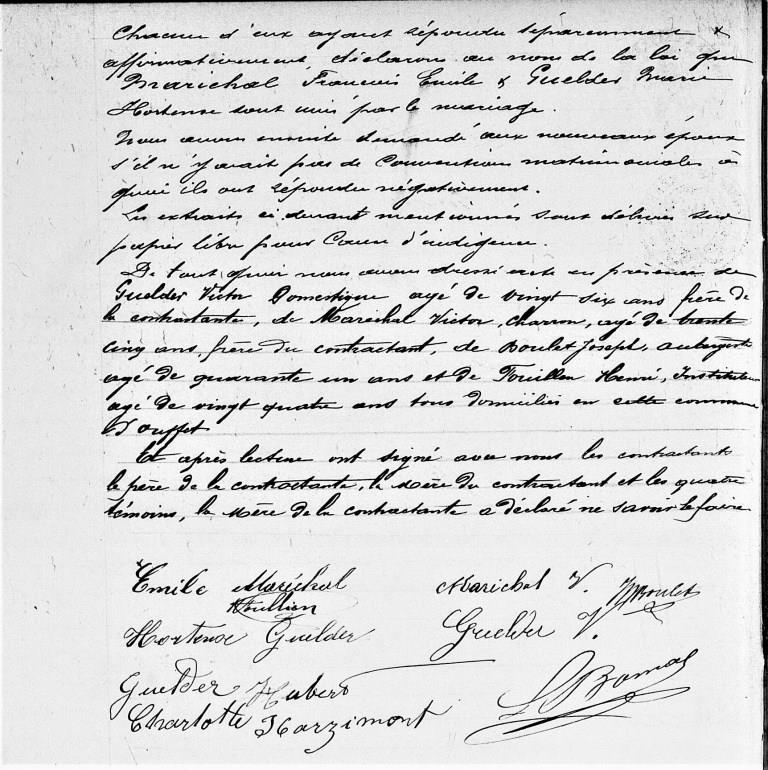 Chacun d'eux ayant répondu séparemment &
affirmativement, déclarons au nom de la loi que
Maréchal, François Emile & Guelder Marie
Hortense sont unis par le mariage.
Nous avons ensuite demandé aux nouveaux époux
s'il n'y avait pas de Conventions matrimoniales à
quoi ils ont répondu négativement.
Les extraits ci-devant mentionnés sont délivrés sur
papier libre pour Cause d'indigence.
De tout quoi nous avons dressé acte en présence de
Guelder Victor Domestique agé de vingt six ans frère de
la contractante, de Maréchal Victor, charron, agé de trente
cinq ans, frère du contractant, de Boulet Joseph, aubergiste
agé de quarante un ans et de Henri, Instituteur
agé de vingt quatre ans tous domiciliés en cette commune
d'Ouffet
Et après lecture ont signé avec nous les contractants
le père de la contractante, la mère du contractant et les quatre
témoins, la mère de la contractante a déclaré ne savoir le faire
Emile Maréchal
Maréchal V.
J Boulet
Hortense Guelder
Guelder V.
Guelder Hubert
Charlotte Harzimont